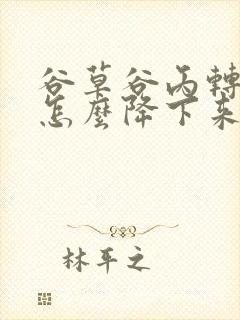 谷草谷丙轉
怎麼降下来
林平之